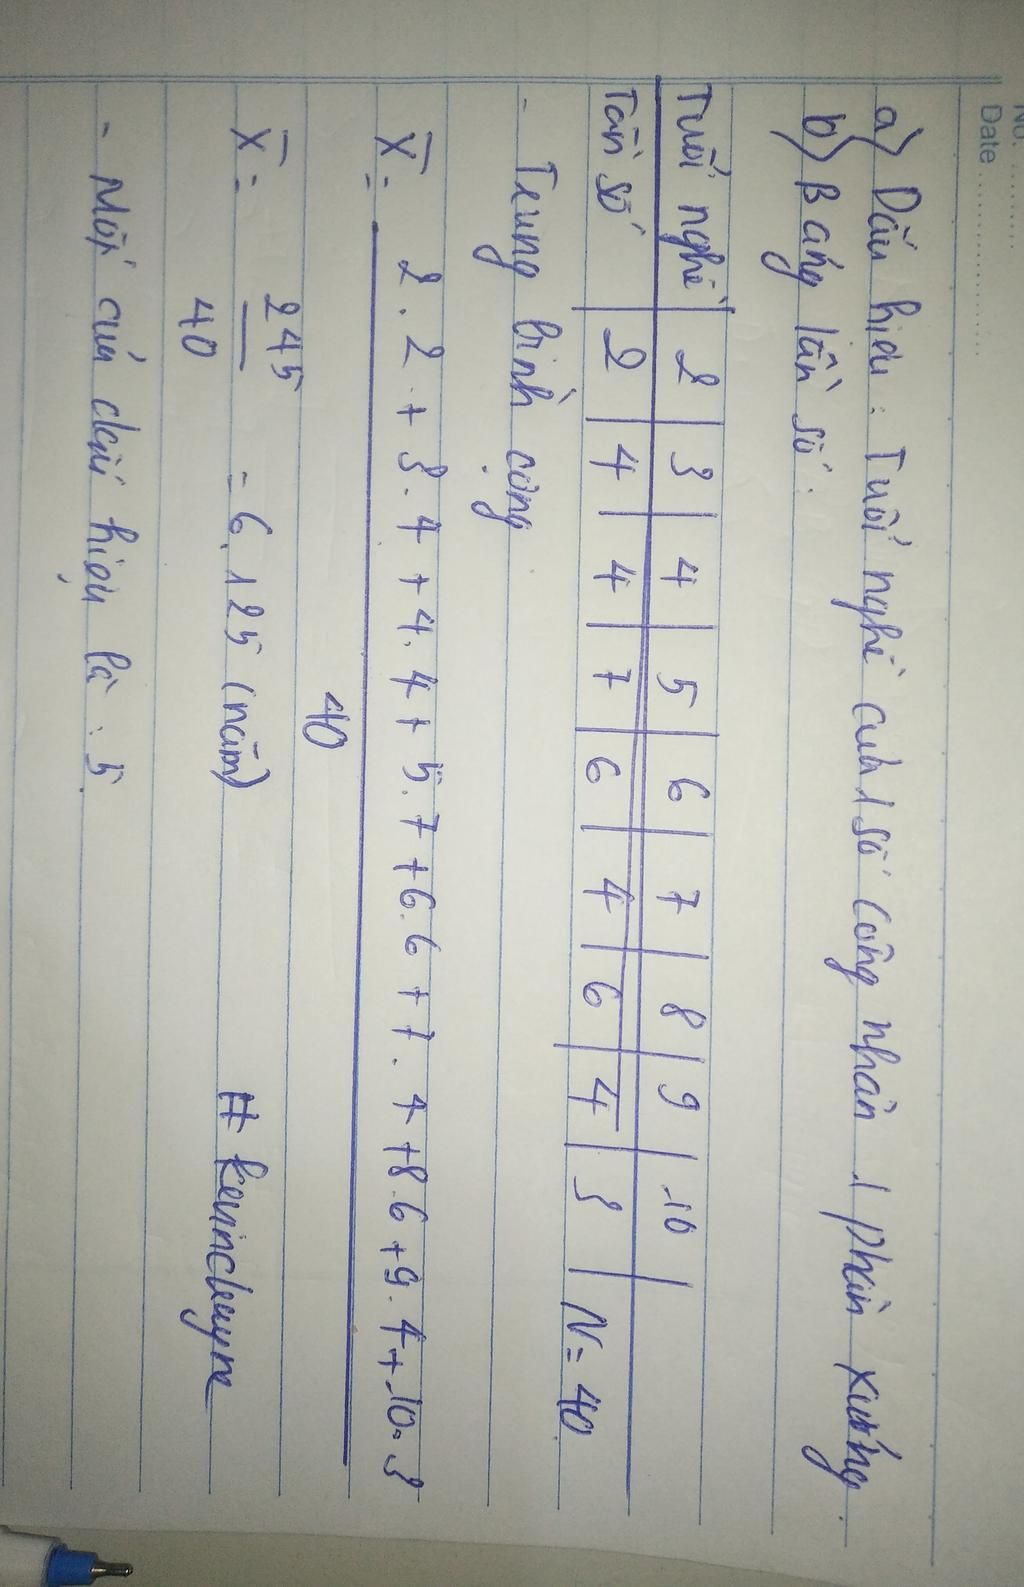 No. ..........
Date ......................
a) Dấu hiệu : Tuổi nghề của 1 số công nhân 1 phân xưởng
b) Bảng tần số :
Tuổi nghề | 2 | 3 | 4 | 5 | 6 | 7 | 8 | 9 | 10
Tần số | 2 | 4 | 4 | 7 | 6 | 4 | 6 | 4 | 3 | N = 40
- Trung bình cộng
X̄ = 2.2 + 3.4 + 4.4 + 5.7 + 6.6 + 7.4 + 8.6 + 9.4 + 10.3
40
X̄ = 245 = 6,125 (năm) # kevinchayne
40
- Mốt của dấu hiệu là : 5